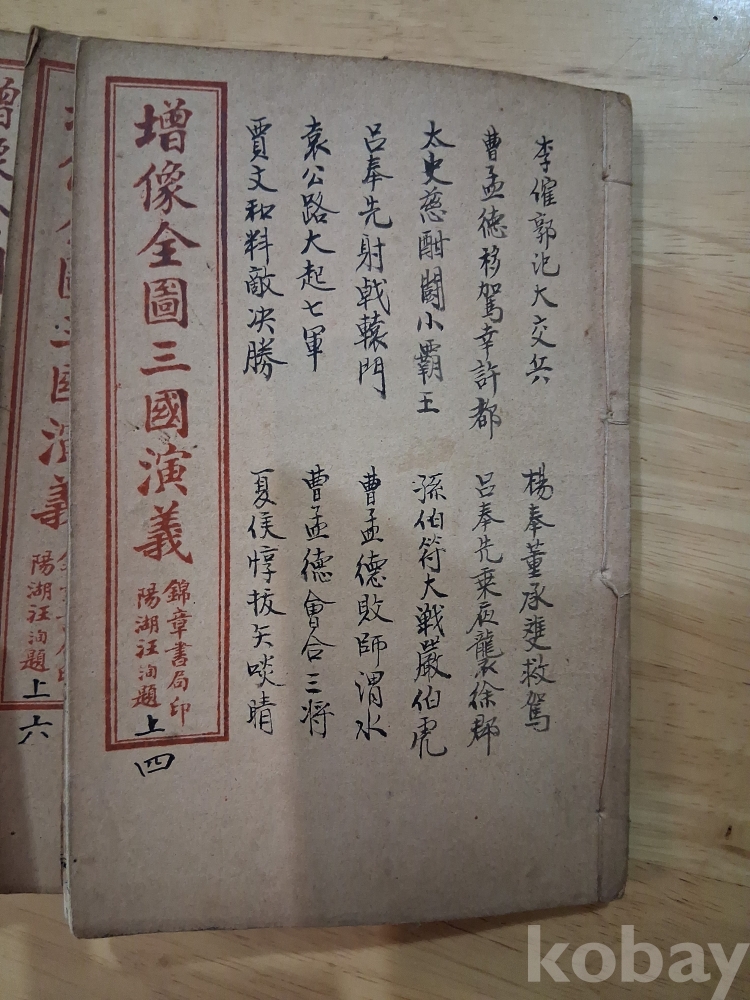 李傕郭汜大交兵
楊奉董承雙救駕
曹孟德移駕幸許都
呂奉先乘夜襲徐郡
太史慈酣鬭小霸王
孫伯符大戰嚴伯虎
呂奉先射戟轅門
曹孟德敗師渭水
袁公路大起七軍
曹孟德會合三將
賈文和料敵決勝
夏侯惇拔矢啖睛
增像全圖三國演義
錦章書局印
陽湖汪洵題
上四
三國演義
陽湖汪洵題
上六
增像全圖
kobay